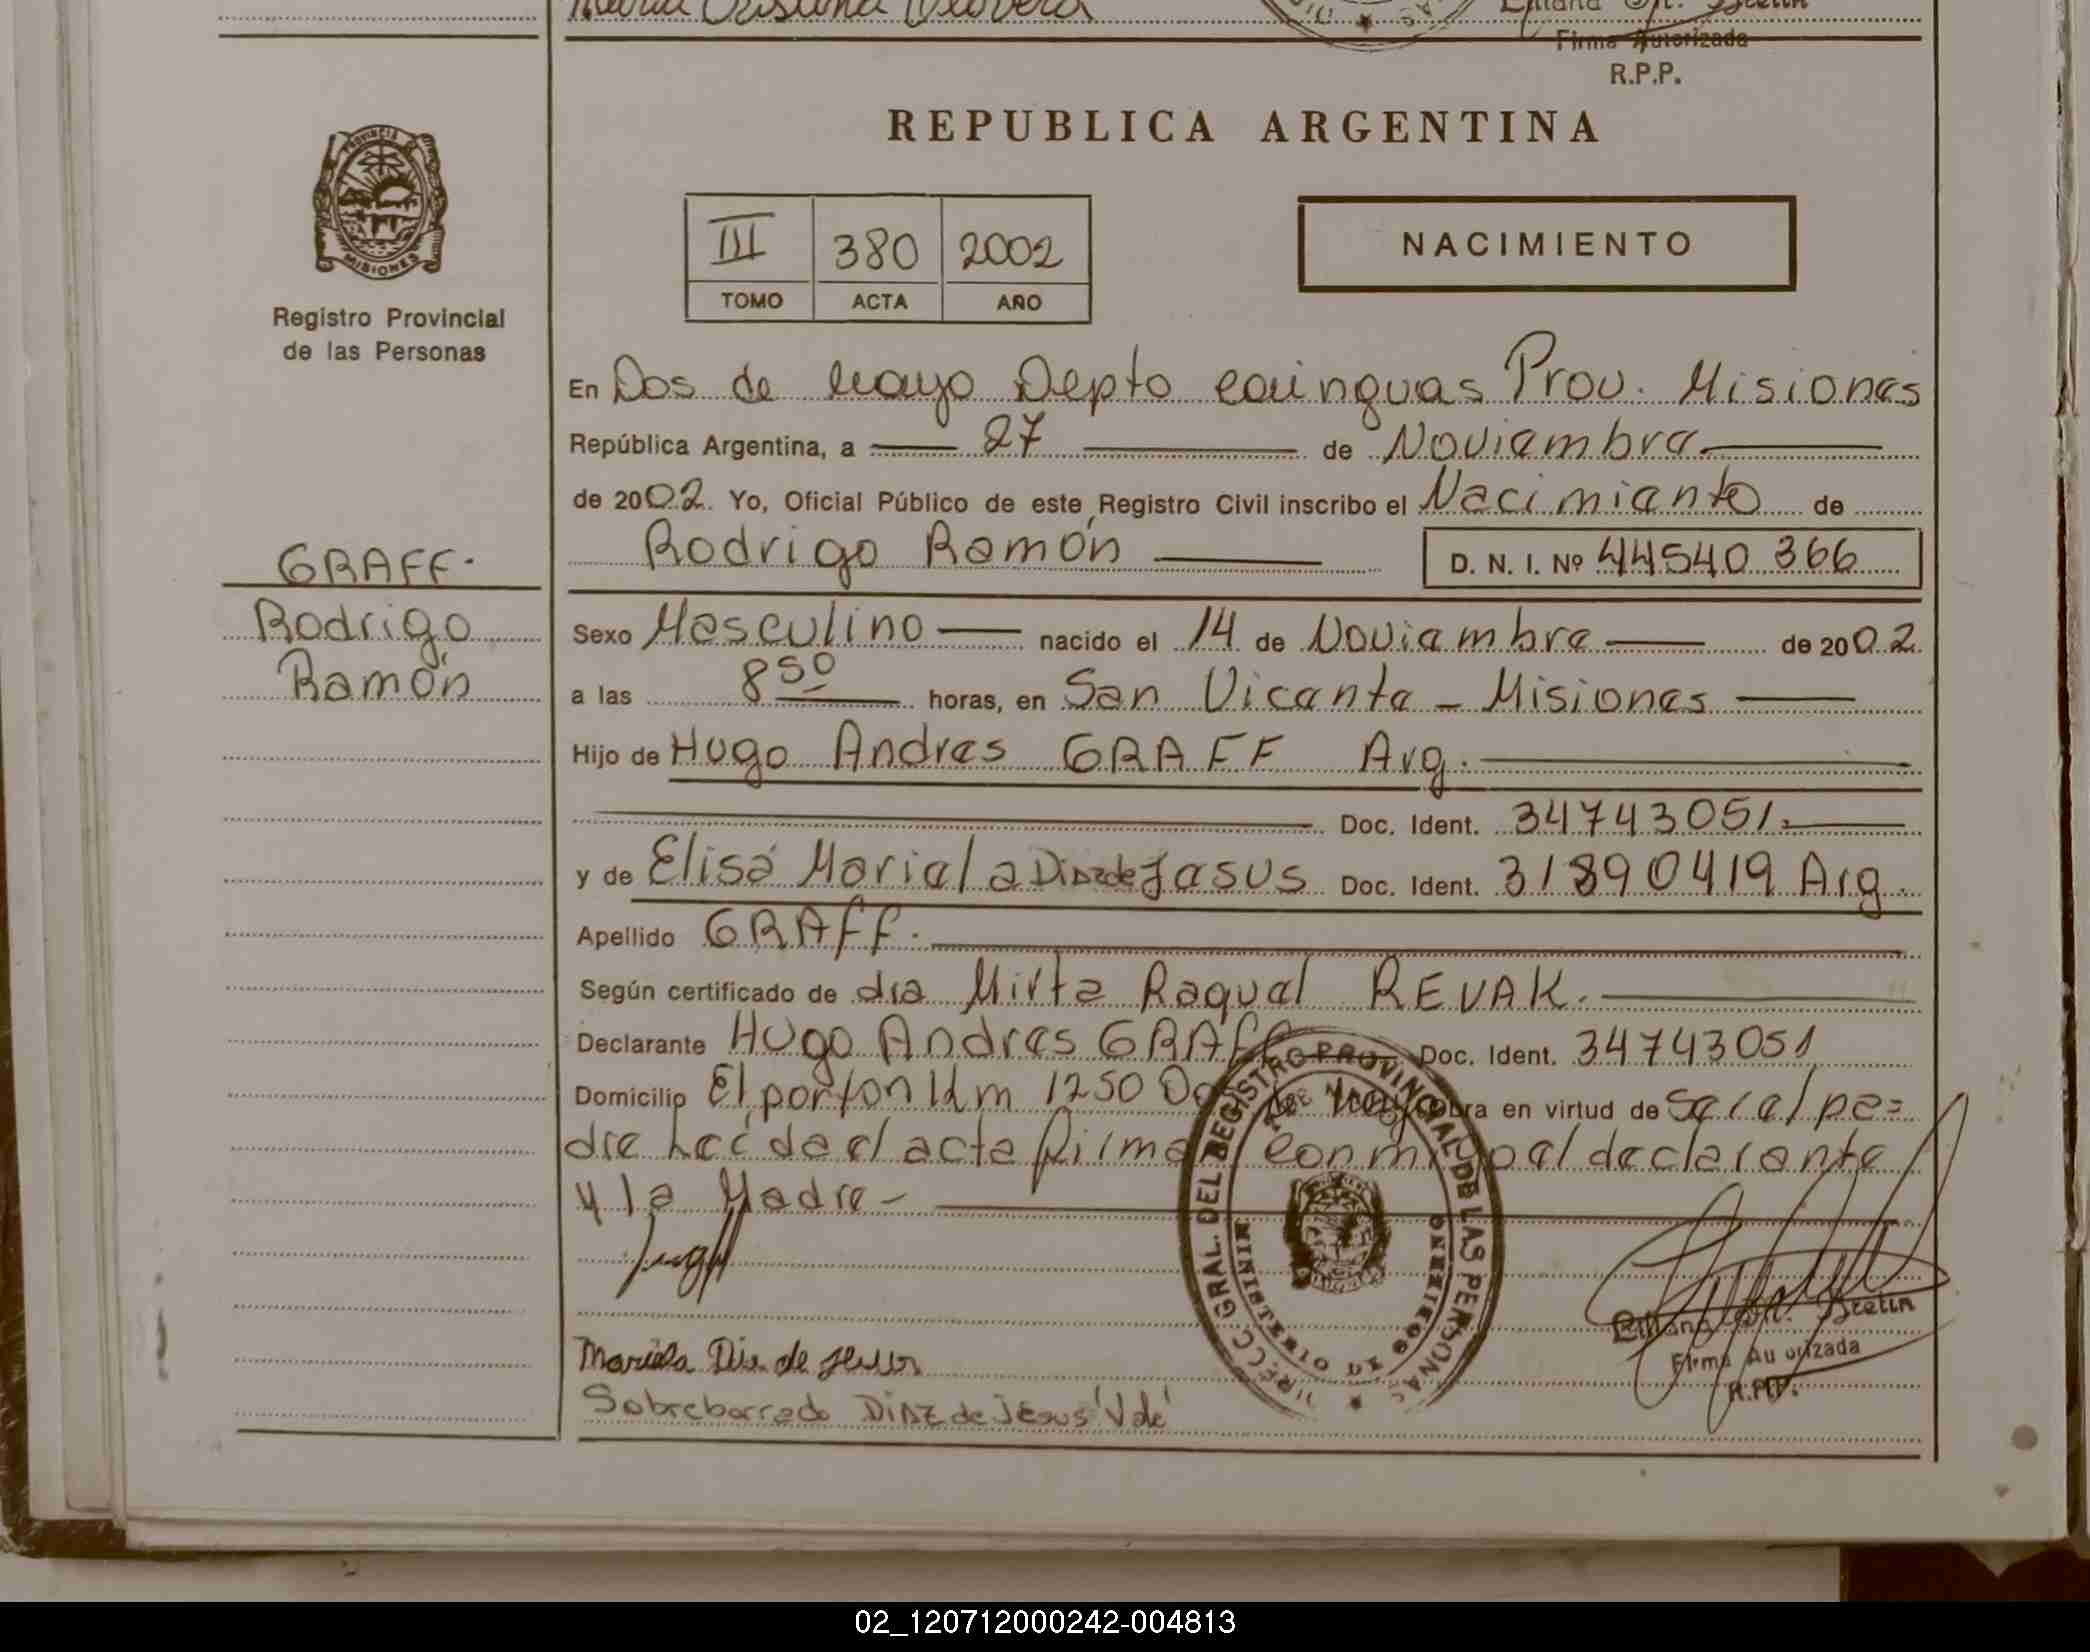 Maria Cristina Olivera
Firma Autorizada
R.P.P.
REPUBLICA ARGENTINA
PROVINCIA DE
MISIONES
Registro Provincial
de las Personas
III 380 2002
TOMO ACTA AÑO
NACIMIENTO
En Dos de Mayo Depto Cainguas Prov. Misiones
República Argentina, a 27 de Noviembre
de 2002. Yo, Oficial Público de este Registro Civil inscribo el Nacimiento de
Rodrigo Ramón D. N. I. Nº 44540 366
GRAFF.
Rodrigo
Ramón
Sexo Masculino nacido el 14 de Noviembre de 2002.
a las 8 50 horas, en San Vicente - Misiones
Hijo de Hugo Andres GRAFF Arg.
Doc. Ident. 34743051.
y de Elisa Mariela DIAZ de Jesus Doc. Ident. 31890419 Arg.
Apellido GRAFF.
Según certificado de dra Mirta Raquel REVAK.
Declarante Hugo Andres GRAFF Doc. Ident. 34743051
Domicilio El porton Km 1250 Dos de Mayo Obra en virtud de Ser el pa=
dre leída el acta firma conmigo el declarante
y la Madre -
DIRECC. GRAL. DEL REGISTRO PROVINCIAL DE LAS PERSONAS
MINISTERIO DE GOBIERNO
Mariela Dia de Jesus
Firma Autorizada
R.P.P.
Sobreborrado DIAZ de Jesus "Vale"
02_120712000242-004813